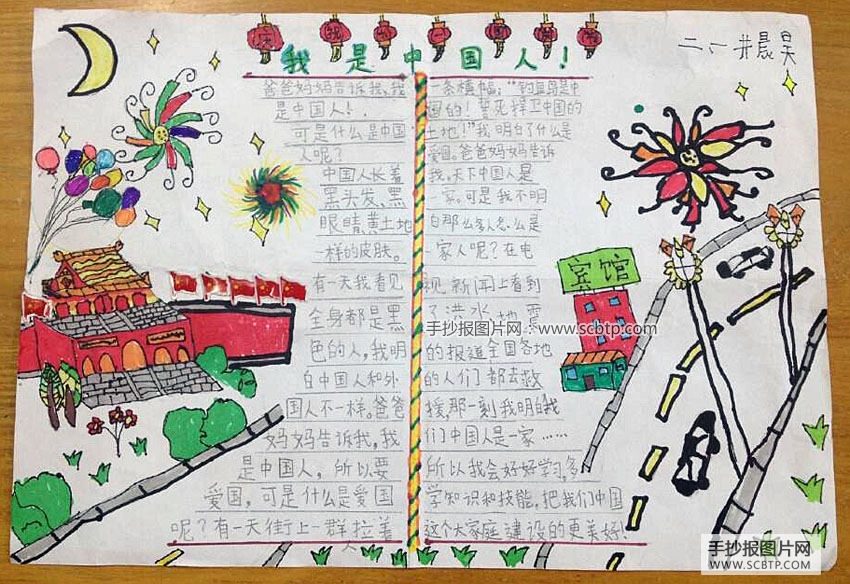 我是中国人！
爸爸妈妈告诉我,我
是中国人！.
可是什么是中国
人呢？
中国人长着
黑头发、黑
眼睛黄土地
一样的皮肤。
有一天我看见
全身都是黑
色的人,我明
白中国人和外
国人不一样。爸爸
妈妈告诉我,我
是中国人，所以要
爱国，可是什么是爱国
呢？有一天街上一群拉着
一条横幅："钓鱼岛是中
国的！誓死捍卫中国的
土地！"我明白了什么是
爱国。爸爸妈妈告诉
我,天下中国人是
一家。可是我不明
白那么多人怎么是
一家人呢？在电
视新闻上看到
了洪水、地震
的报道全国各地
的人们都去救
援,那一刻我明白我
们中国人是一家……
所以我会好好学习,多
学知识和技能,把我们中国
这个大家庭建设的更美好!
宾馆
手抄报图片网：www.scbtp.com
手抄报图片网
WWW.SCBTP.COM